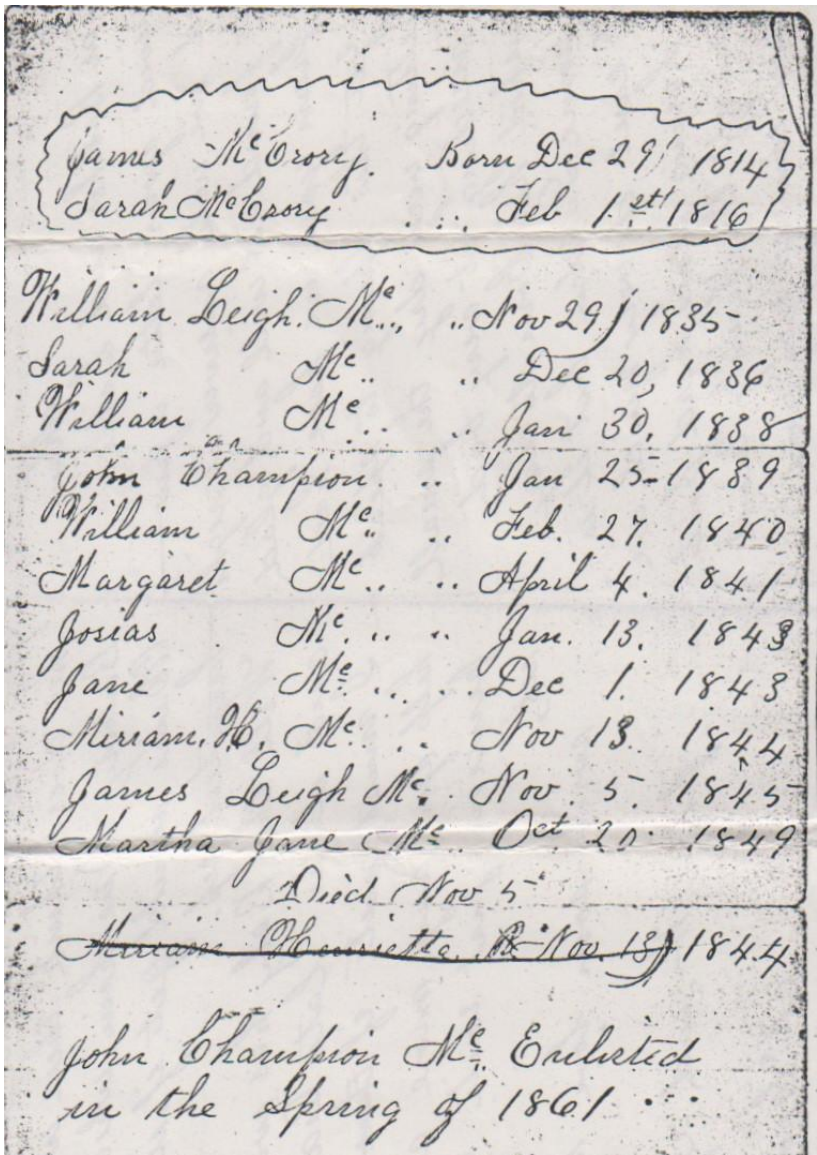 James McCrory. Born Dec 29 1814
Sarah McCrory .... Feb 1.st 1816
William Leigh. Mc.., .. Nov 29, 1835
Sarah Mc.. .. Dec 20, 1836
William Mc.. .. Jan 30. 1838
John Champion. .. Jan 25-1839
William Mc.. .. Feb. 27. 1840
Margaret Mc.. .. April 4. 1841
Josias Mc... .. Jan. 13. 1843
Jane Mc... .. Dec 1. 1843
Miriam. H. Mc... .. Nov 13. 1844
James Leigh Mc. . Nov. 5. 1845
Martha Jane Mc.. Oct 20. 1849
Died Nov 5
Miriam Henriette Nov. 13 1844
John Champion Mc.. Enlisted
in the Spring of 1861 ...